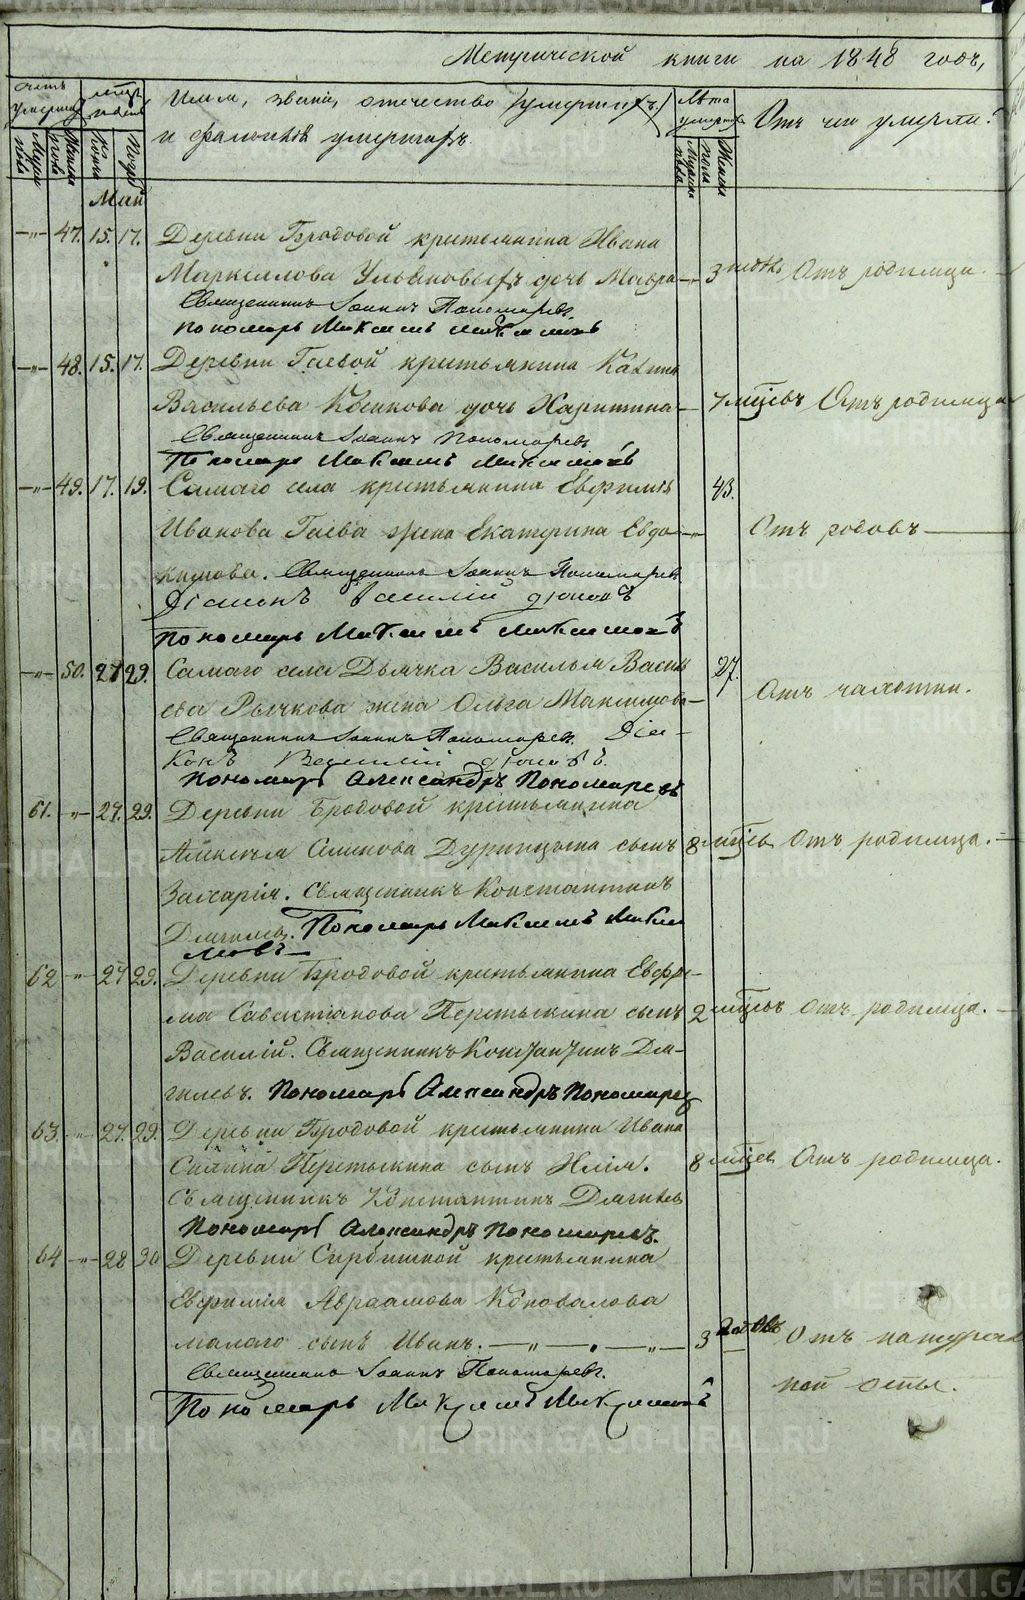 METRIKI.GASO-URAL.RU
Метрической книги на 1848 годъ,
Счетъ умершихъ
Мѣсяцъ и день
Имя, званіе, отечество (умершихъ)
и фамилія умершихъ.
Лѣта умершихъ
Отъ чего умерли?
Мужеска пола
Женска пола
Май
47. 15. 17. Деревни Бродовой крестьянина Ивана
Маркеллова Ульяновыхъ дочь Мавра 3 Отъ родимца.
Священникъ Іоаннъ Пономаревъ
Пономарь Максимъ Максимовъ
48. 15. 17. Деревни Гаевой крестьянина
Васильева дочь Харитина 7 мѣсцевъ Отъ родимца
Священникъ Іоаннъ Пономаревъ
Пономарь Максимъ Максимовъ
49. 17. 19. Самаго села крестьянина Евфимія 43.
Иванова Гаева жена Екатерина Евдо- Отъ родовъ
кимова. Священникъ Іоаннъ Пономаревъ
Діаконъ Василій
Пономарь Максимъ Максимовъ
50. 27 29. Самаго села Дьячка Василья Василь 27.
ева Рычкова жена Ольга Максимова Отъ чахотки.
Священникъ Іоаннъ Пономаревъ. Діа-
конъ Василій
Пономарь Александръ Пономаревъ
61. 27. 29. Деревни Бродовой крестьянина
сынъ 8 мѣсцевъ Отъ родимца.
Захарія. Священникъ Константинъ
Дягилевъ. Пономарь Максимъ Макси
мовъ
62 27 29. Деревни Бродовой крестьянина Евфи-
ма Савактіанова Перетыкина сынъ 2 мѣсцевъ Отъ родимца.
Василій. Священникъ Константинъ Дя-
гилевъ. Пономарь Александръ Пономаревъ
63. 27. 29. Деревни Бродовой крестьянина Ивана
Силина Перетыкина сынъ Илія. 8 мѣсцев Отъ родимца.
Священникъ Константинъ Дягилевъ
Пономарь Александръ Пономаревъ.
64 28 30 Деревни крестьянина
Евфимія Авраамова Коновалова
малаго сынъ Иванъ. 3 годовъ Отъ натураль
Священникъ Іоаннъ Пономаревъ. ной оспы.
Пономарь Максимъ Максимовъ